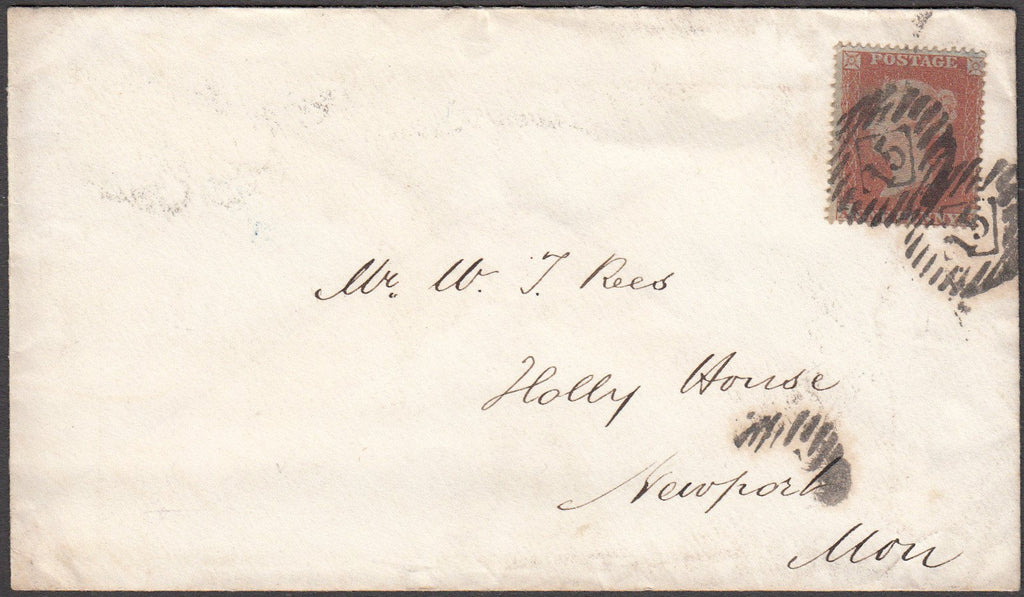 POSTAGE
15
15
Mr. W. T. Rees
Holly House
Newport
Mon